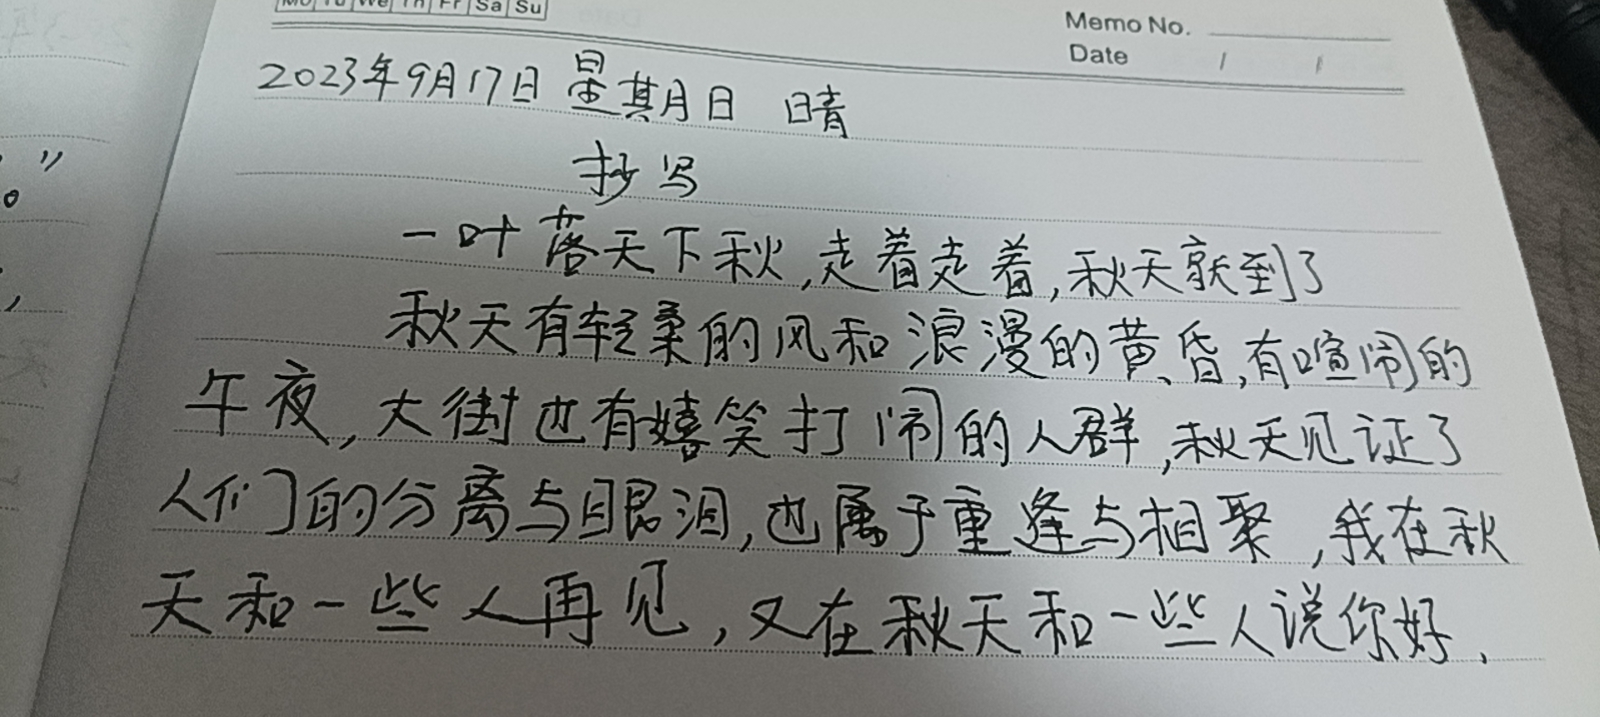 Mo Tu We Th Fr Sa Su
Memo No.
Date / /
2023年9月17日 星期日 晴
抄写
一叶落天下秋,走着走着,秋天就到了
秋天有轻柔的风和浪漫的黄昏,有喧闹的
午夜,大街也有嬉笑打闹的人群,秋天见证了
人们的分离与眼泪,也属于重逢与相聚,我在秋
天和一些人再见,又在秋天和一些人说你好.